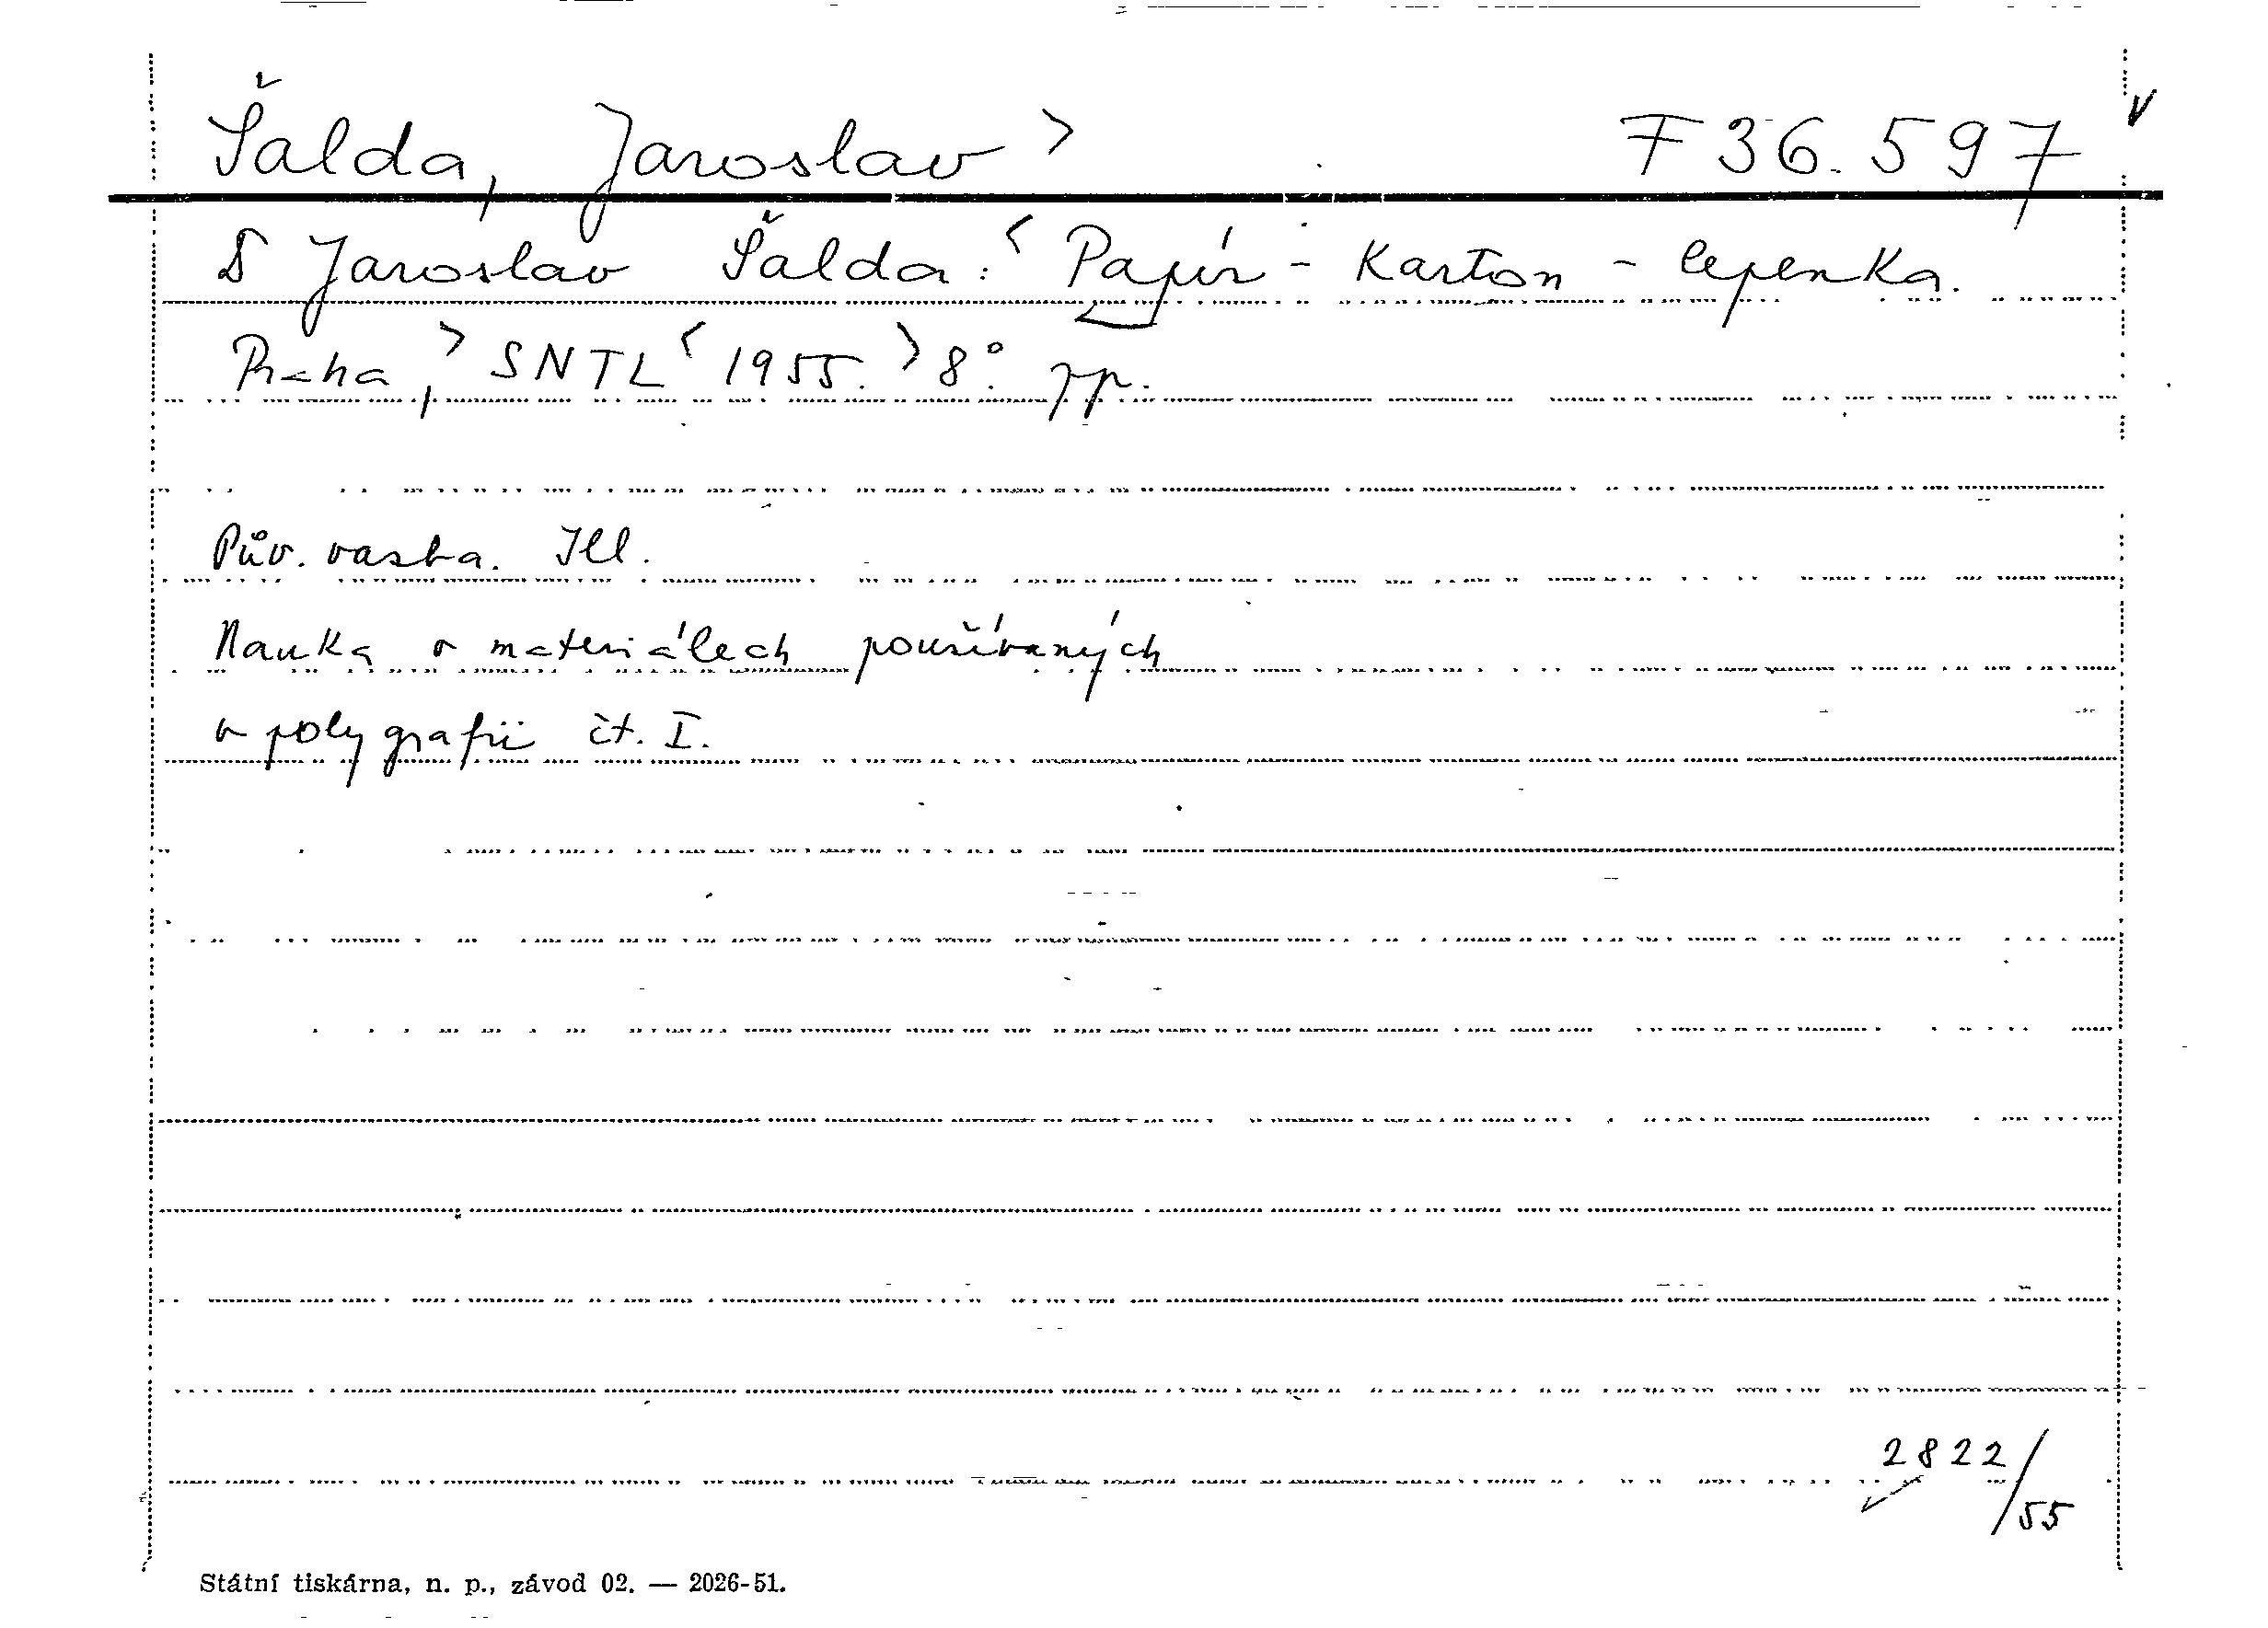 Šalda, Jaroslav > F 36.597
Jaroslav Šalda: < Papír - Karton - lepenka.
Praha, > SNTL < 1955. > 8°. pp.
Pův. vazba. Ill.
Nauka o materiálech používaných
v polygrafii čt. I.
2822/55
Státní tiskárna, n. p., závod 02. — 2026-51.